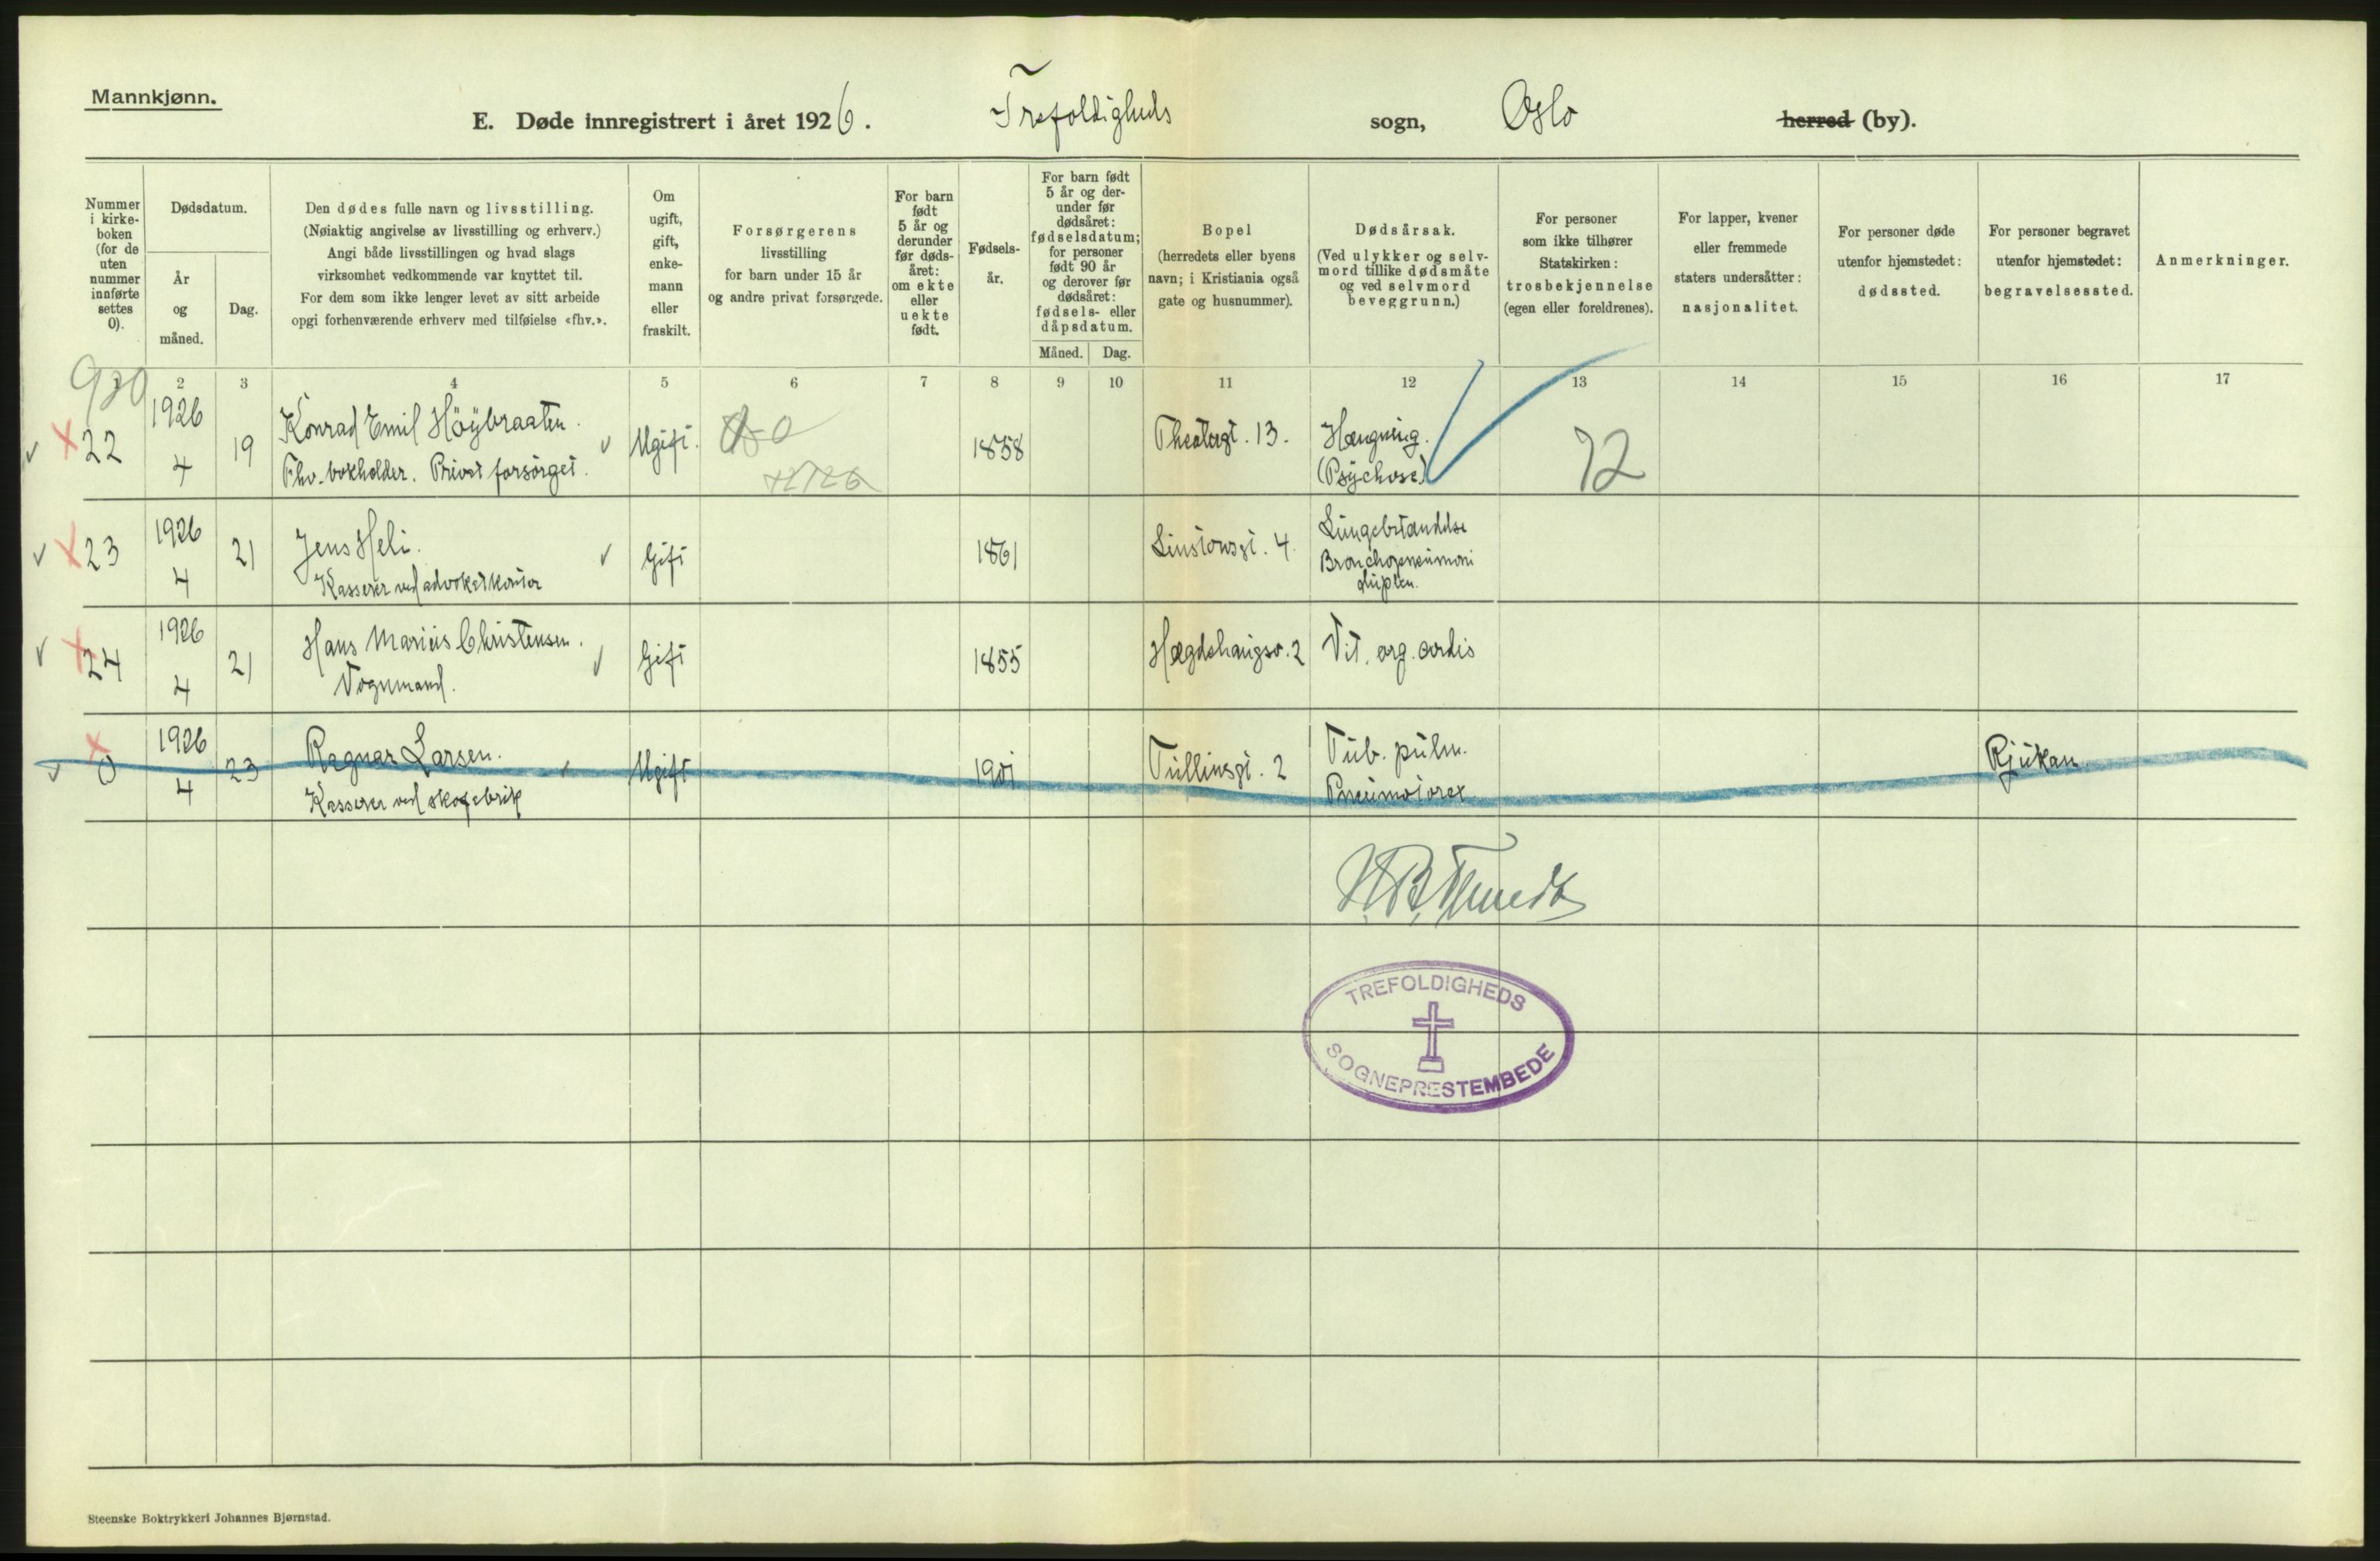 Mannkjønn.
E. Døde innregistrert i året 1926. Trefoldigheds sogn, Oslo herred (by).
Nummer
i kirke-
boken
(for de
uten
nummer
innførte
settes
0).
Dødsdatum.
År
og
måned.
Dag.
Den dødes fulle navn og livsstilling.
(Nøiaktig angivelse av livsstilling og erhverv.)
Angi både livsstillingen og hvad slags
virksomhet vedkommende var knyttet til.
For dem som ikke lenger levet av sitt arbeide
opgi forhenværende erhverv med tilføielse «fhv.».
Om
ugift,
gift,
enke-
mann
eller
fraskilt.
Forsørgerens
livsstilling
for barn under 15 år
og andre privat forsørgede.
For barn
født
5 år og
derunder
før døds-
året:
om ekte
eller
uekte
født.
Fødsels-
år.
For barn født
5 år og der-
under før
dødsåret:
fødselsdatum;
for personer
født 90 år
og derover før
dødsåret:
fødsels- eller
dåpsdatum.
Måned. Dag.
Bopel
(herredets eller byens
navn; i Kristiania også
gate og husnummer).
Dødsårsak.
(Ved ulykker og selv-
mord tillike dødsmåte
og ved selvmord
beveggrunn.)
For personer
som ikke tilhører
Statskirken:
trosbekjennelse
(egen eller foreldrenes).
For lapper, kvener
eller fremmede
staters undersåtter:
nasjonalitet.
For personer døde
utenfor hjemstedet:
dødssted.
For personer begravet
utenfor hjemstedet:
begravelsessted.
Anmerkninger.
1 2 3 4 5 6 7 8 9 10 11 12 13 14 15 16 17
22 1926 4 19 Konrad Emil Höybraaten. Ugift. 1858 Theatergt. 13. Hængning. 72
Fhv. bokholder. Privat forsørget. (Psychose)
23 1926 4 21 Jens Heli. Gift 1861 Linstowsgt. 4. Lungebetændelse
Kasserer ved advokatkontor Bronchopneumoni
duplex.
24 1926 4 21 Hans Marius Christensen. Gift 1855 Hægdehaugsv. 2 Vit. org. cordis
Vognmand.
0 1926 4 23 Ragnar Larsen. Ugift 1901 Tullinsgt. 2 Tub. pulm. Rjukan.
Kasserer ved skofabrik Pneumotorax
TREFOLDIGHEDS
SOGNEPRESTEMBEDE
Steenske Boktrykkeri Johannes Bjørnstad.